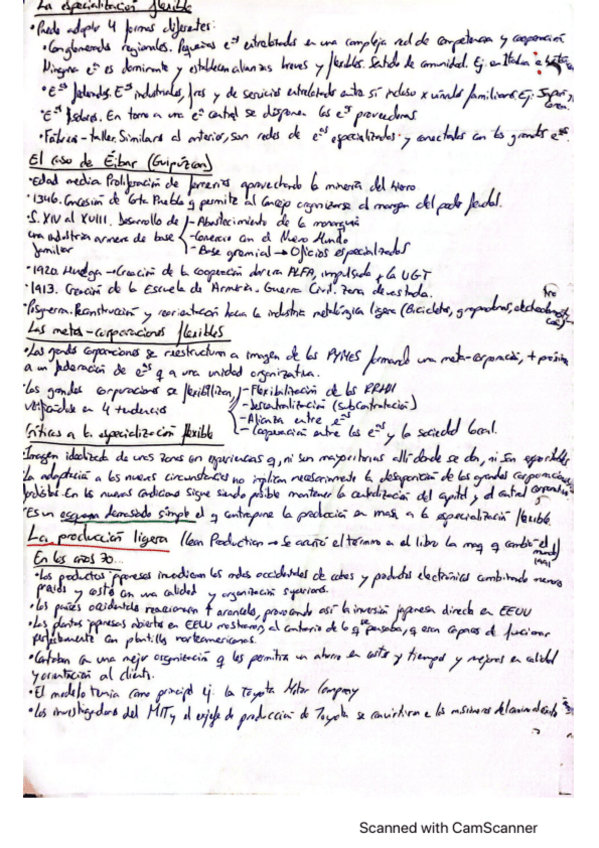 La especialización flexible
• Puede adoptar 4 formas diferentes:
• Conglomerados regionales. Pequeñas eˢᵃˢ entrelazadas en una compleja red de competencia y cooperación
Ninguna eˢᵃ es dominante y establecen alianzas breves y flexibles. Sentido de comunidad. Ej: en Italia
• Eˢᵃˢ federadas. Eˢᵃˢ industriales, y de servicios entrelazadas entre sí incluso x vínculos familiares. Ej:
• Eˢᵃˢ En torno a una eˢᵃ central se disponen las eˢᵃˢ proveedoras
• Fábricas-taller. Similares al anterior, son redes de eˢᵃˢ especializadas y conectadas con las grandes eˢᵃˢ.
El caso de Éibar (Guipúzcoa)
• Edad media Proliferación de ferrerías aprovechando la minería del hierro
• 1346. Concesión de Carta Puebla q permite al Concejo organizarse al margen del poder feudal.
• S. XIV al XVIII. Desarrollo de - Abastecimiento de la monarquía
una industria armera de base - Comercio con el Nuevo Mundo
familiar - Base gremial → Oficios especializados
• 1920. Huelga → Creación de la cooperativa obrera ALFA, impulsada x la UGT
• 1913. Creación de la Escuela de Armería. Guerra Civil. Zona devastada.
Posguerra. Reconstrucción y reorientación hacia la industria metalúrgica ligera (Bicicletas, grapadoras,
Las meta-corporaciones flexibles
• Las grandes corporaciones se reestructuran a imagen de las PYMES formando una meta-corporación, + próxima
a una federación de eˢᵃˢ q a una unidad organizativa.
• Las grandes corporaciones se flexibilizan, - Flexibilización de las RRHH
en 4 tendencias - Descentralización (subcontratación)
- Alianza entre eˢᵃˢ
- Cooperación entre las eˢᵃˢ y la sociedad local.
Críticas a la especialización flexible
• Imagen idealizada de unas zonas en q, ni son mayoritarias allí donde se dan, ni son exportables
• La adaptación a las nuevas circunstancias no implica necesariamente la desaparición de las grandes corporaciones
En las nuevas condiciones sigue siendo posible mantener la centralización del capital y el control
• Es un esquema demasiado simple el q contrapone la producción en masa a la especialización flexible.
La producción ligera (Lean Production → Se acuñó el término en el libro La maq q cambió el
mundo
1991
En los años 70...
• Los productos japoneses invadieron los mdos occidentales de coches y productos electrónicos combinando menores
precios y costes con una calidad y organización superiores.
• Los países occidentales reaccionaron + aranceles, provocando así la inversión japonesa directa en EEUU
• Las plantas japonesas abiertas en EEUU mostraron, al contrario de lo q se pensaba, q eran capaces de funcionar
perfectamente con plantillas norteamericanas.
• Contaban con una mejor organización q les permitía un ahorro en coste y tiempos y mejoras en calidad
y orientación al cliente.
• El modelo tenía como principal ej. la Toyota Motor Company
• Los investigadores del MIT y el exjefe de producción de Toyota se convirtieron en los misioneros del
Scanned with CamScanner